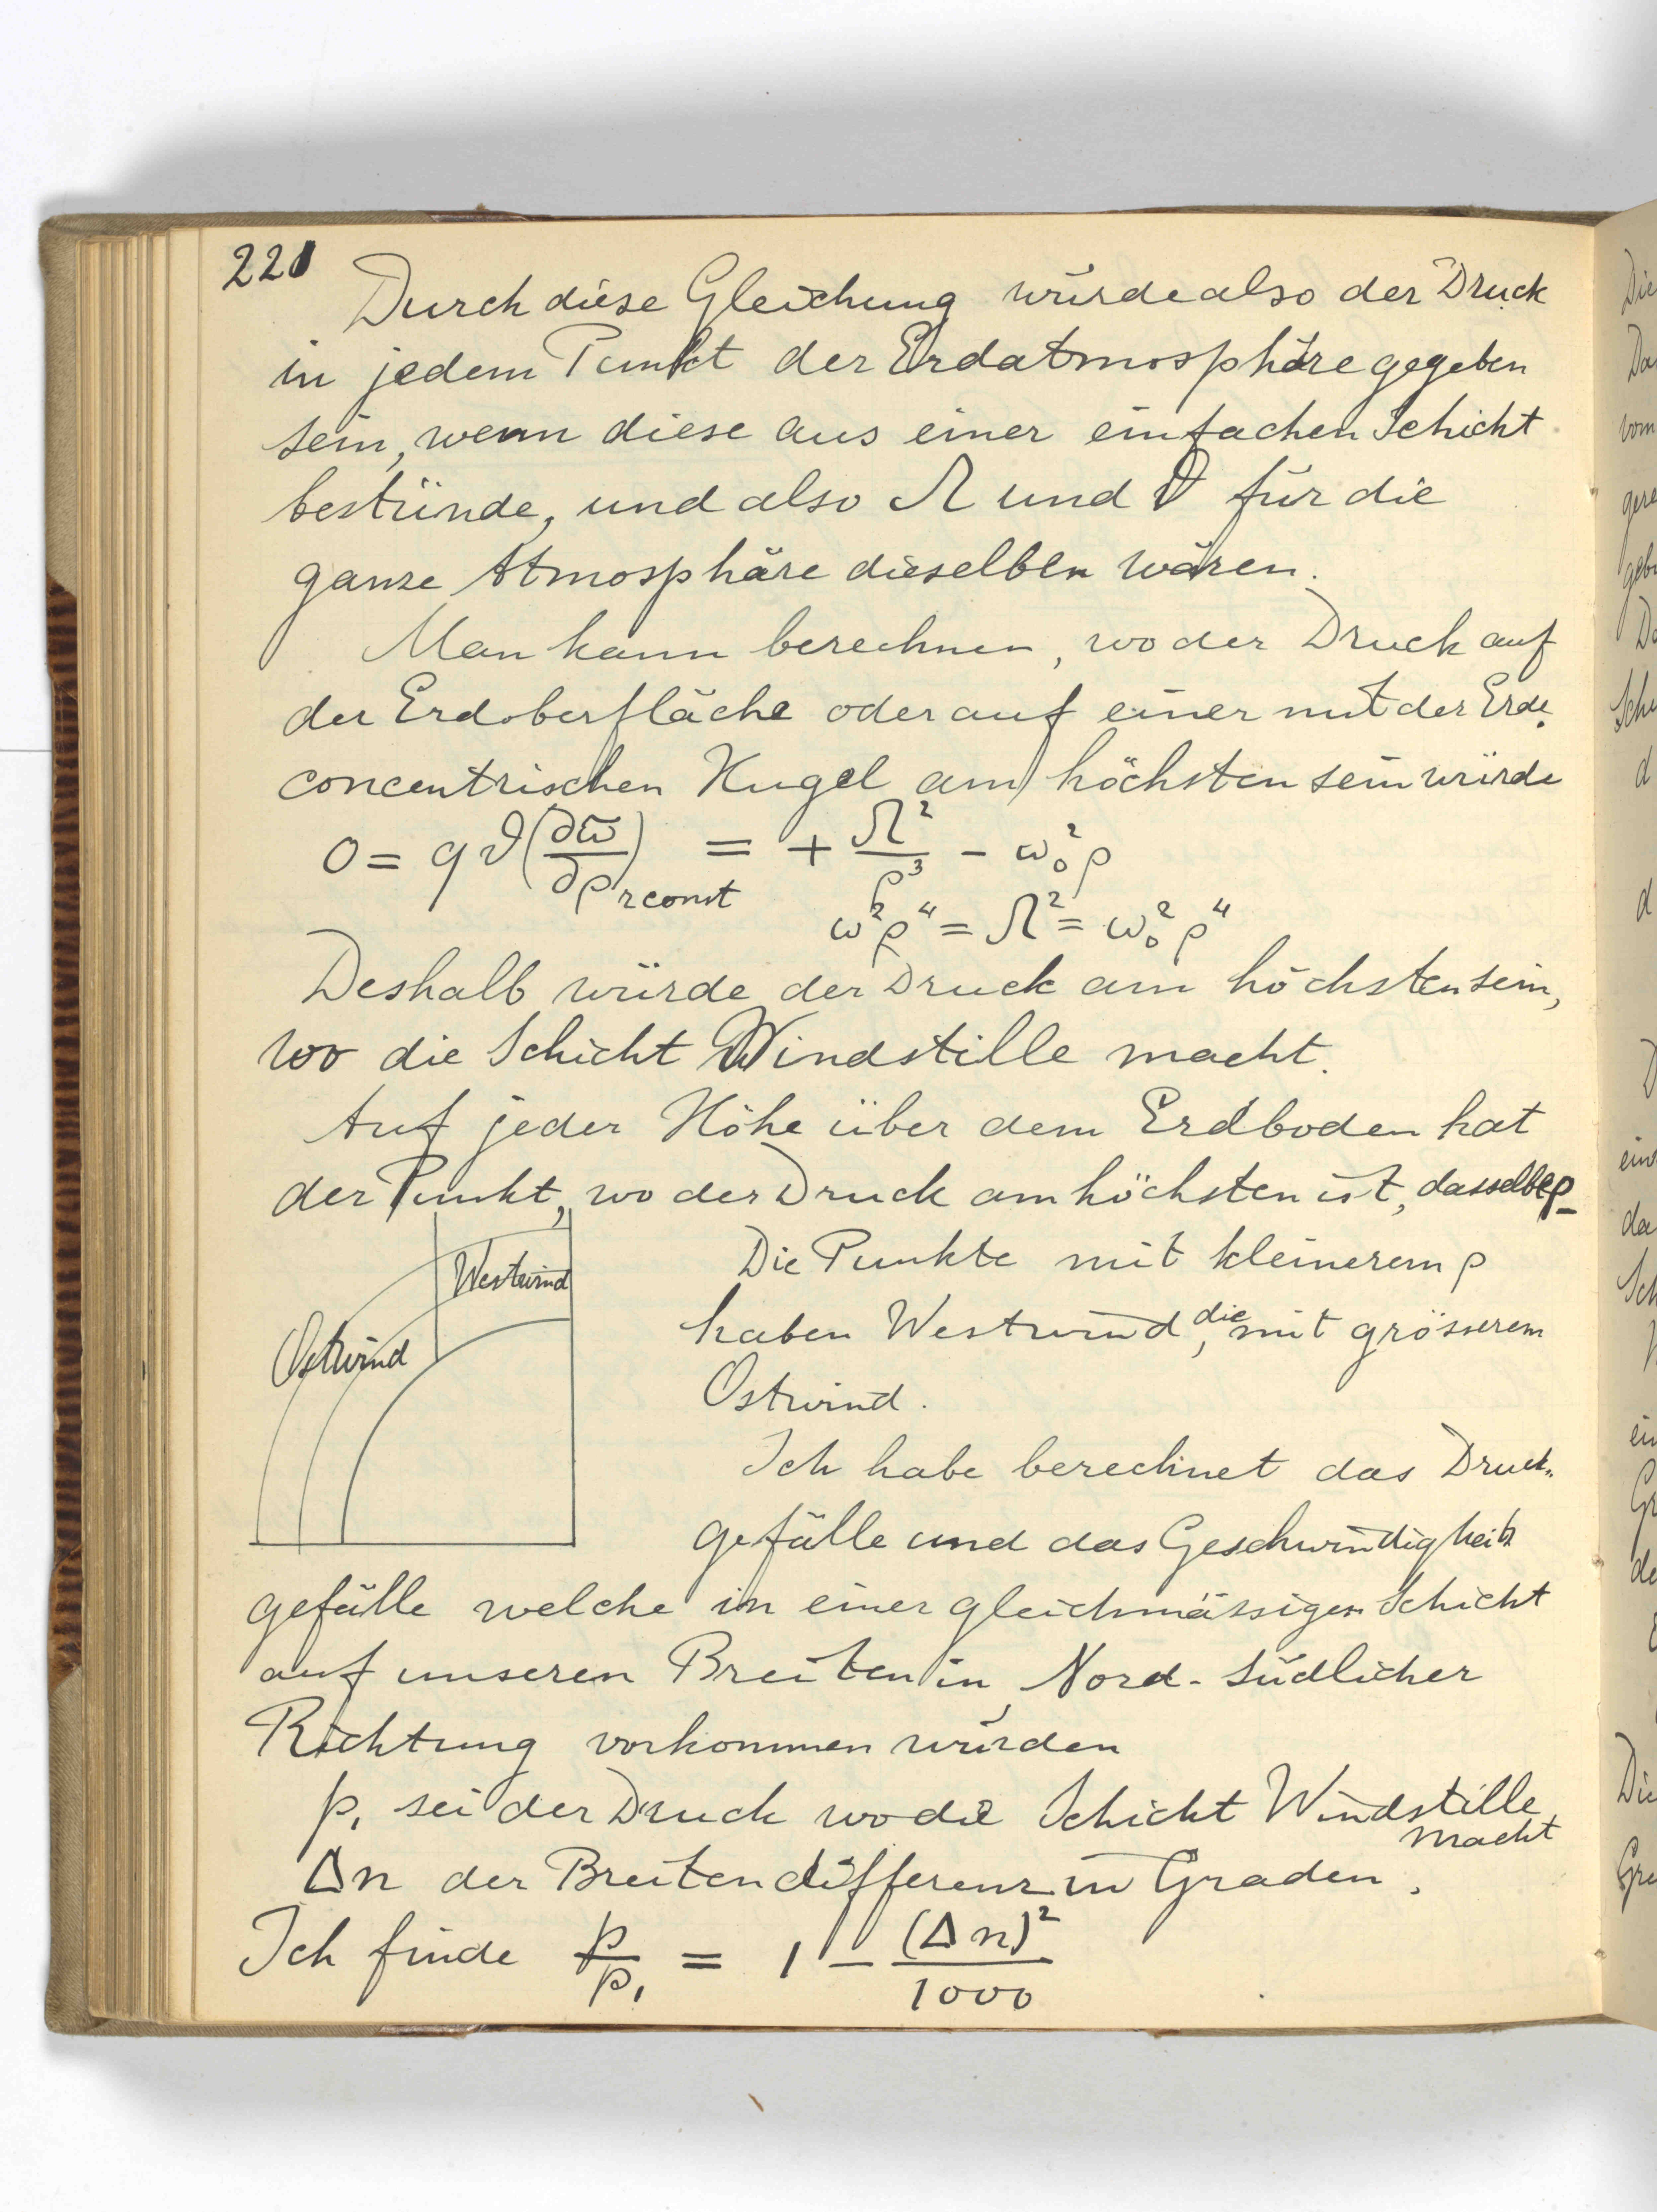 221
Durch diese Gleichung würde also der Druck
in jedem Punkt der Erdatmosphäre gegeben
sein, wenn diese aus einer einfachen Schicht
bestünde, und also Ω und ϑ für die
ganze Atmosphäre dieselben wären.
Man kann berechnen, wo der Druck auf
der Erdoberfläche oder auf einer mit der Erde
concentrischen Kugel am höchsten sein würde
0 = qϑ(∂ϖ/∂ρ) r const = + Ω²/ρ³ − ω₀²ρ
ω²ρ⁴ = Ω² = ω₀²ρ⁴
Deshalb würde der Druck am höchsten sein,
wo die Schicht Windstille macht.
Auf jeder Höhe über dem Erdboden hat
der Punkt, wo der Druck am höchsten ist, dasselbe ρ
Westwind
Ostwind
Die Punkte mit kleinerem ρ
haben Westwind, die mit grösserem
Ostwind.
Ich habe berechnet das Druck-
gefälle und das Geschwindigkeits
gefälle welche in einer gleichmässigen Schicht
auf unseren Breiten in Nord-südlicher
Richtung vorkommen würden
p₁ sei der Druck wo die Schicht Windstille macht,
Δn der Breitendifferenz in Graden.
Ich finde p/p₁ = 1 − (Δn)²/1000